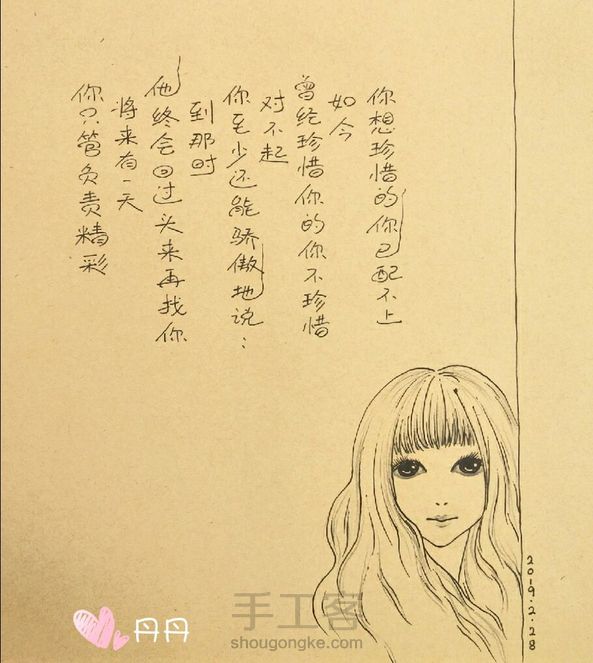 你只管负责精彩
将来有一天
他终会回过头来再找你
到那时
你至少还能骄傲地说：
对不起
曾经珍惜你的你不珍惜
如今
你想珍惜的你已配不上
2019.2.28
丹丹
手工客
shougongke.com